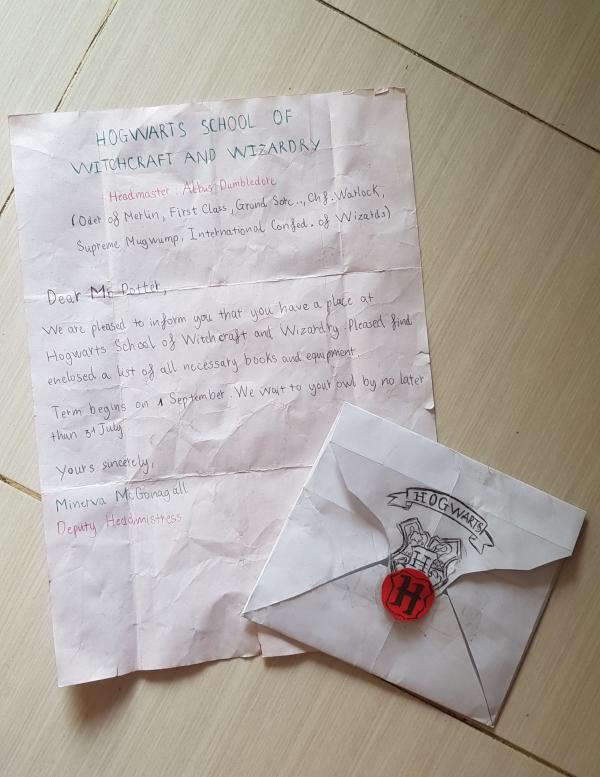 HOGWARTS SCHOOL OF
WITCHCRAFT AND WIZARDRY
Headmaster : Albus Dumbledore
(Oder of Merlin, First Class, Grand Sorc.., Chf. Warlock,
Supreme Mugwump, International Confed. of Wizards)
Dear Mr Potter,
We are pleased to inform you that you have a place at
Hogwarts School of Witchcraft and Wizardry. Pleased find
enclosed a list of all necessary books and equipment.
Term begins on 1 September. We wait to your owl by no later
than 31 July
Yours sincerely,
Minerva McGonagall
Deputy Headmistress
HOGWARTS
H
H